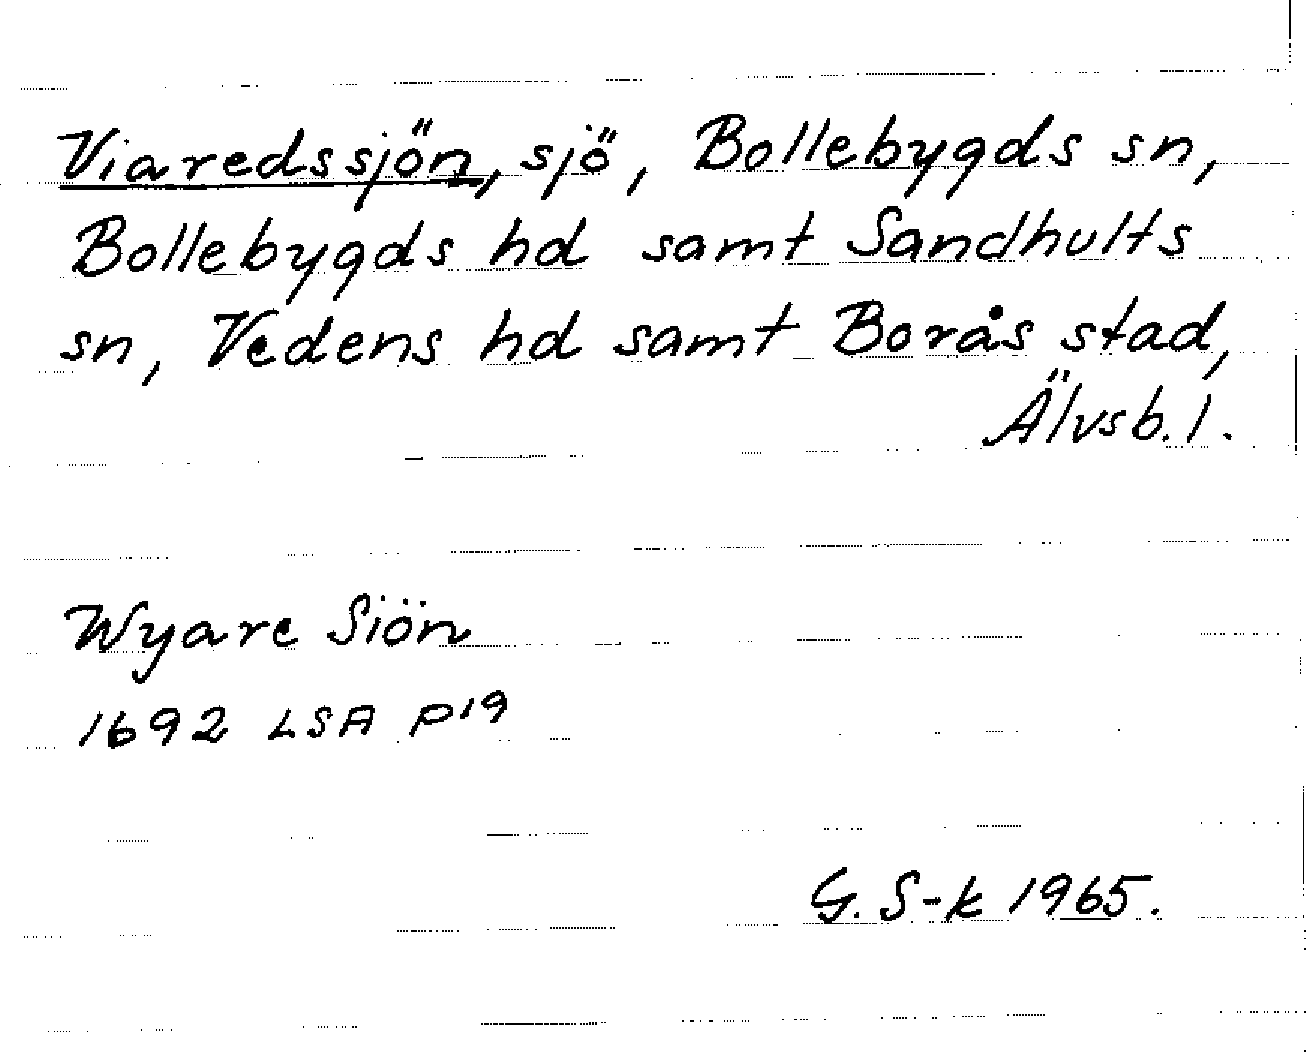 Viaredssjön, sjö, Bollebygds sn,
Bollebygds hd samt Sandhults
sn, Vedens hd samt Borås stad,
Älvsb. l.
Wyare Siön
1692 LSA P19
G. S-k 1965.